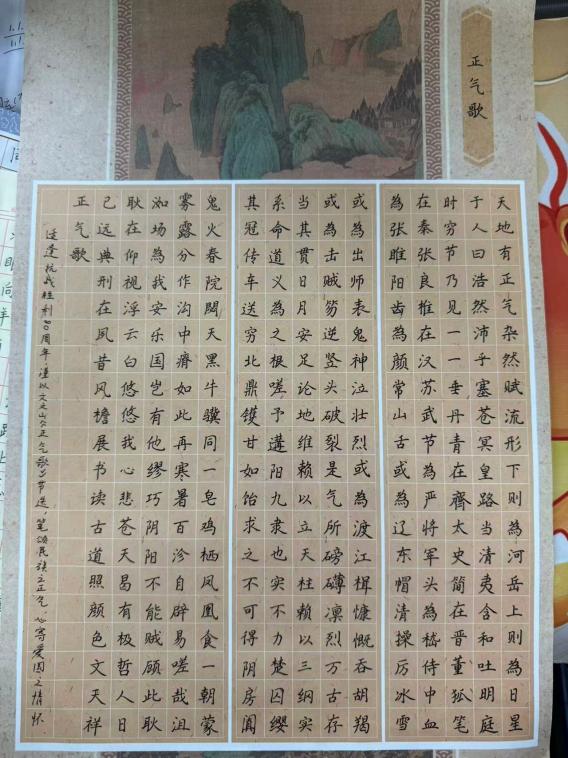 正气歌
天地有正气杂然赋流形下则為河岳上则為日星
于人曰浩然沛乎塞苍冥皇路当清夷含和吐明庭
时穷节乃见一一垂丹青在齊太史简在晋董狐笔
在秦张良椎在汉苏武节為严将军头為嵇侍中血
為张睢阳齿為颜常山舌或為辽东帽清操厉冰雪
或為出师表鬼神泣壮烈或為渡江楫慷慨吞胡羯
或為击贼笏逆竖头破裂是气所磅礴凛烈万古存
当其贯日月安足论地维赖以立天柱赖以三纲实
系命道义為之根嗟予遘阳九隶也实不力楚囚缨
其冠传车送穷北鼎镬甘如饴求之不可得阴房阒
鬼火春院閟天黑牛骥同一皂鸡栖凤凰食一朝蒙
雾露分作沟中瘠如此再寒暑百沴自辟易嗟哉沮
洳场為我安乐国岂有他缪巧阴阳不能贼顾此耿
耿在仰视浮云白悠悠我心悲苍天曷有极哲人日
已远典刑在夙昔风檐展书读古道照颜色文天祥
正气歌
适逢抗战胜利80周年，谨以文文山《正气歌》节选，笔颂民族之正气，心寄爱国之情怀.